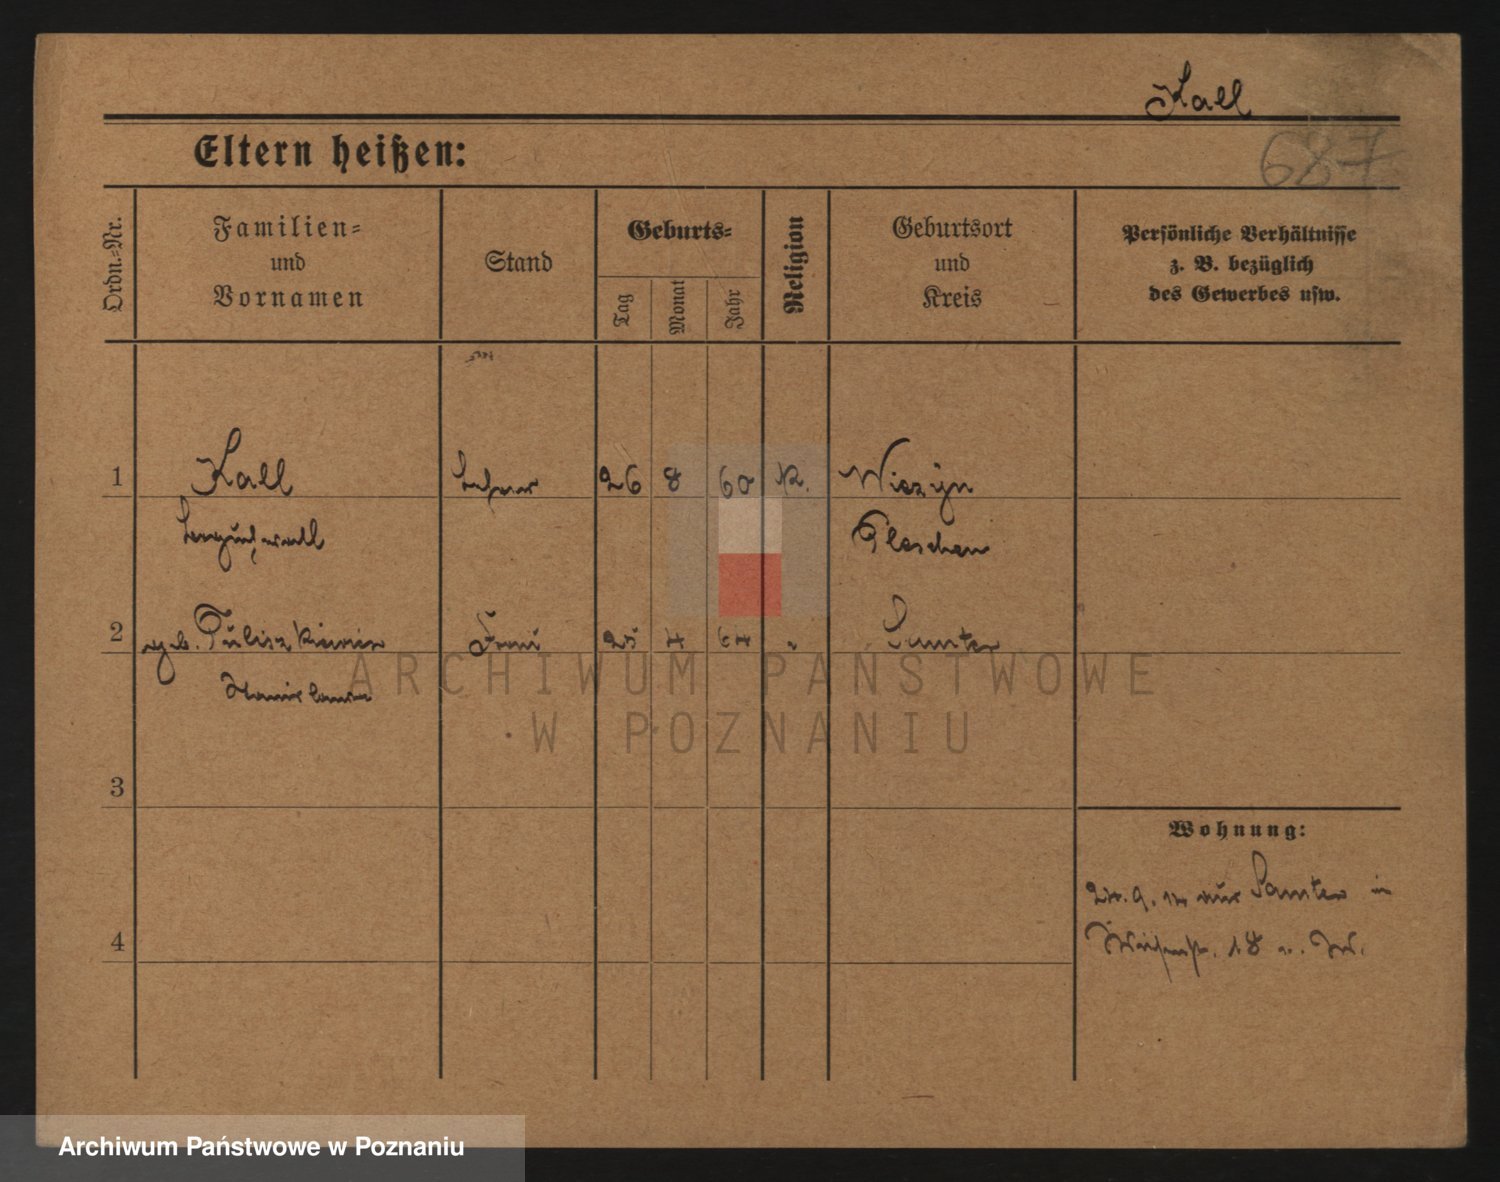 Kall
687
Eltern heißen:
Ordn.-Nr.
Familien-
und
Vornamen
Stand
Geburts-
Tag
Monat
Jahr
Religion
Geburtsort
und
Kreis
Persönliche Verhältnisse
z. B. bezüglich
des Gewerbes usw.
1 Kall Lehrer 26 8 60 K.
Pleschen
2 geb. Frau 25 4 64 " Samter
Stanislawa
ARCHIWUM PAŃSTWOWE
W POZNANIU
3
Wohnung:
9. 14 aus Samter in
4
18 
Archiwum Państwowe w Poznaniu